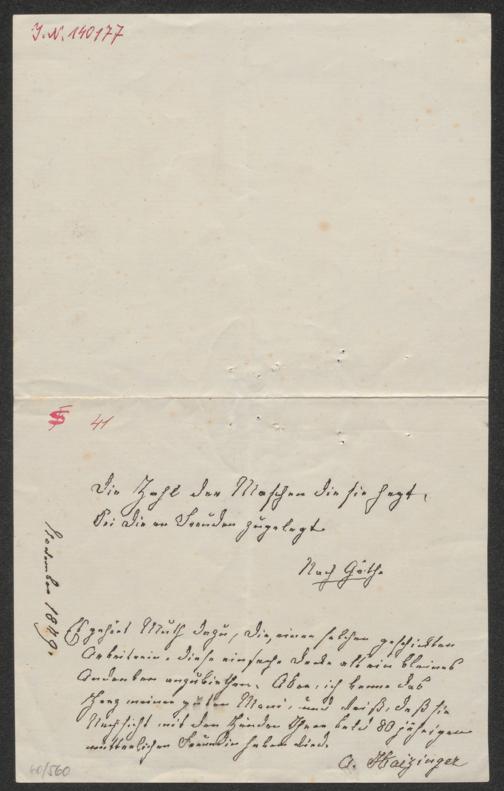 J.N. 140177
41
Die Zahl der Maschen die sie hegt,
Sei Dir an Freuden zugelegt
Nach Göthe
November 1879.
Es gehört Muth dazu, Dir, einer solchen geschickten
Arbeiterin, diese einfache Decke als ein kleines
Andenken anzubiethen. Aber, ich kenne das
Herz meiner guten Mani, und weiß, daß sie
Nachsicht mit den Händen Ihrer bald 80 jährigen
mütterlichen Freundin haben wird.
A. Haizinger
40/560